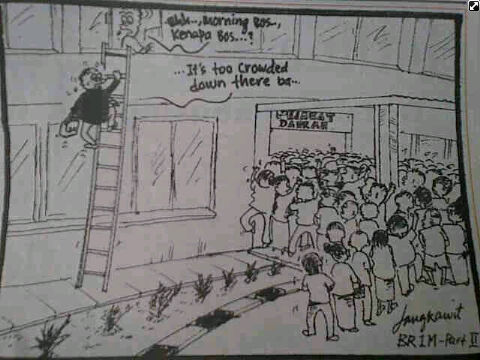 Ehh..., Morning Bos..,
Kenapa Bos...?
...It's too Crowded
down there ba...
DAERAH
Jangkawit
BR1M-Part II